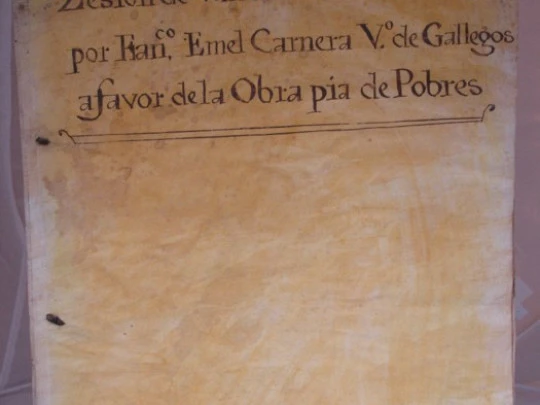 Zesion de
por Fran.co Emel Carnera V.o de Gallegos
afavor dela Obra pia de Pobres